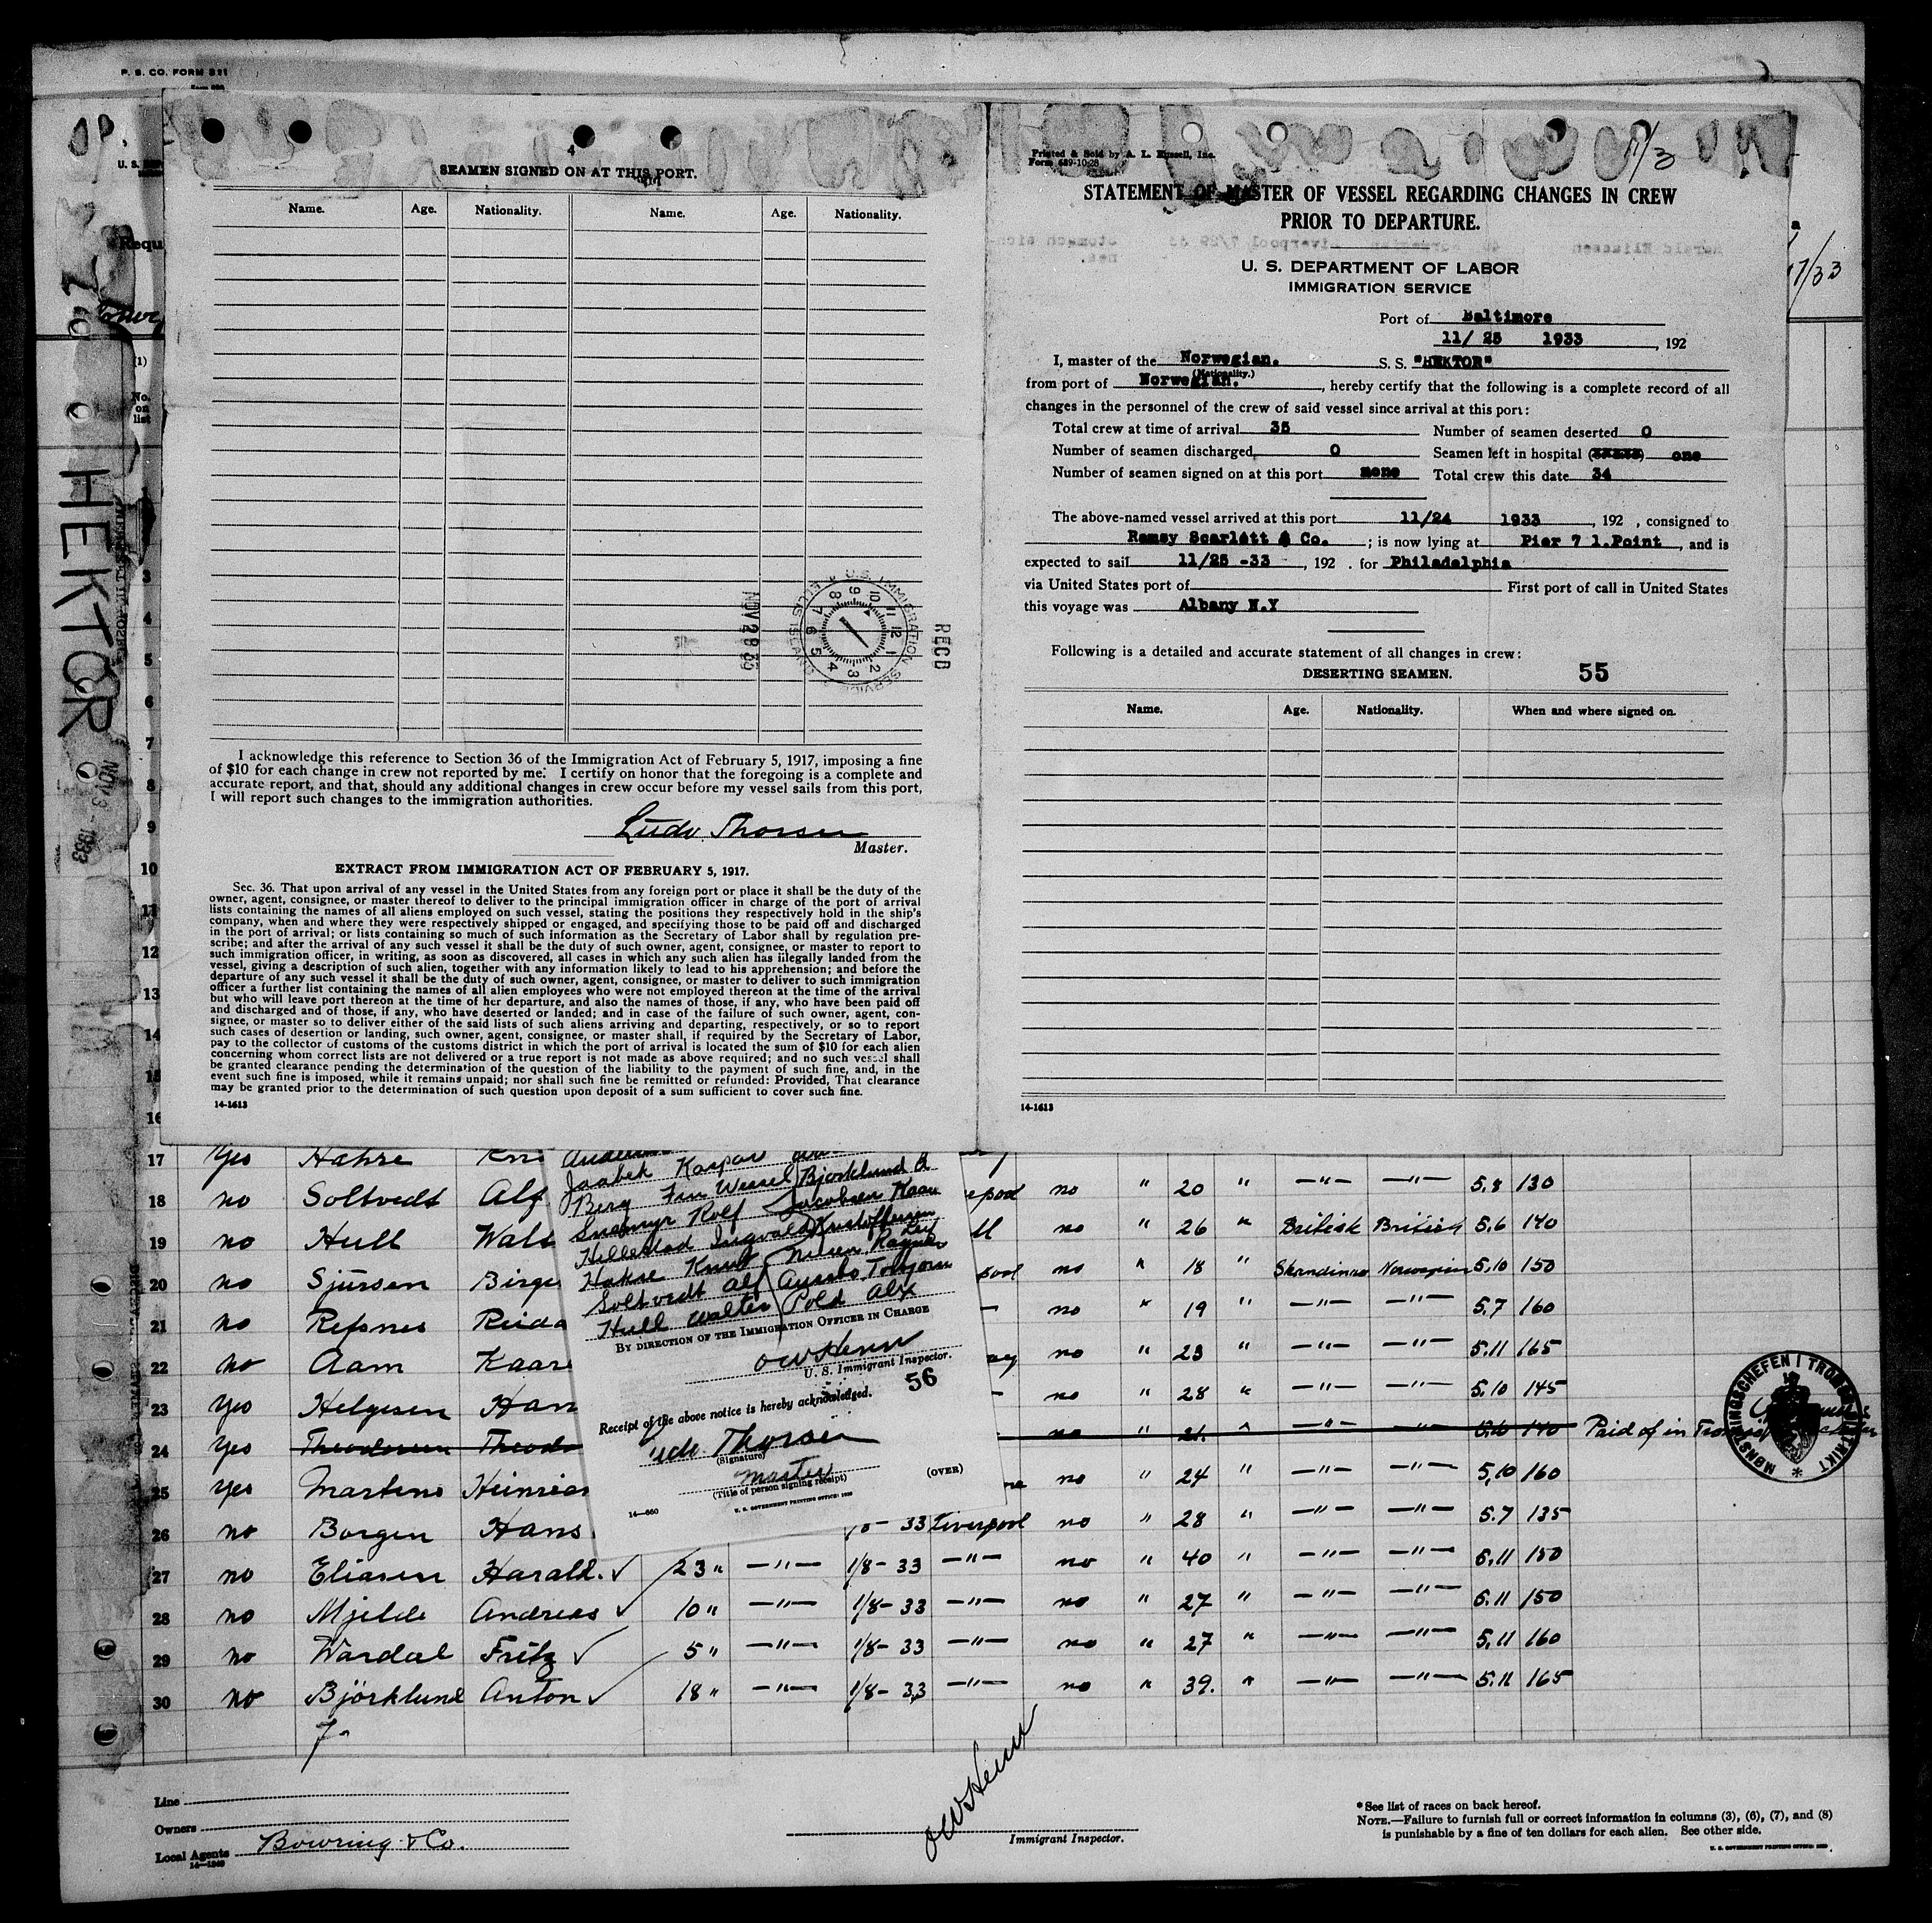 P. S. CO. FORM 311
4
SEAMEN SIGNED ON AT THIS PORT.
Name. Age. Nationality. Name. Age. Nationality.
NOV 28
RECD
U. S. IMMIGRATION SERVICE
I acknowledge this reference to Section 36 of the Immigration Act of February 5, 1917, imposing a fine
of $10 for each change in crew not reported by me. I certify on honor that the foregoing is a complete and
accurate report, and that, should any additional changes in crew occur before my vessel sails from this port,
I will report such changes to the immigration authorities.
Ludv. Thorsen
Master.
EXTRACT FROM IMMIGRATION ACT OF FEBRUARY 5, 1917.
Sec. 36. That upon arrival of any vessel in the United States from any foreign port or place it shall be the duty of the
owner, agent, consignee, or master thereof to deliver to the principal immigration officer in charge of the port of arrival
lists containing the names of all aliens employed on such vessel, stating the positions they respectively hold in the ship's
company, when and where they were respectively shipped or engaged, and specifying those to be paid off and discharged
in the port of arrival; or lists containing so much of such information as the Secretary of Labor shall by regulation pre-
scribe; and after the arrival of any such vessel it shall be the duty of such owner, agent, consignee, or master to report to
such immigration officer, in writing, as soon as discovered, all cases in which any such alien has illegally landed from the
vessel, giving a description of such alien, together with any information likely to lead to his apprehension; and before the
departure of any such vessel it shall be the duty of such owner, agent, consignee, or master to deliver to such immigration
officer a further list containing the names of all alien employees who were not employed thereon at the time of the arrival
but who will leave port thereon at the time of her departure, and also the names of those, if any, who have been paid off
and discharged and of those, if any, who have deserted or landed; and in case of the failure of such owner, agent, con-
signee, or master so to deliver either of the said lists of such aliens arriving and departing, respectively, or so to report
such cases of desertion or landing, such owner, agent, consignee, or master shall, if required by the Secretary of Labor,
pay to the collector of customs of the customs district in which the port of arrival is located the sum of $10 for each alien
concerning whom correct lists are not delivered or a true report is not made as above required; and no such vessel shall
be granted clearance pending the determination of the question of the liability to the payment of such fine, and, in the
event such fine is imposed, while it remains unpaid; nor shall such fine be remitted or refunded: Provided, That clearance
may be granted prior to the determination of such question upon deposit of a sum sufficient to cover such fine.
14-1613
Printed & Sold by A. L. Russell, Inc.
Form 689-10-28
STATEMENT OF MASTER OF VESSEL REGARDING CHANGES IN CREW
PRIOR TO DEPARTURE.
U. S. DEPARTMENT OF LABOR
IMMIGRATION SERVICE
Port of Baltimore
11/ 25 1933, 192
I, master of the Norwegian. S. S. "HEKTOR"
(Nationality.)
from port of Norwegian., hereby certify that the following is a complete record of all
changes in the personnel of the crew of said vessel since arrival at this port:
Total crew at time of arrival 35 Number of seamen deserted 0
Number of seamen discharged 0 Seamen left in hospital one
Number of seamen signed on at this port none Total crew this date 34
The above-named vessel arrived at this port 11/24 1933, 192 , consigned to
Ramsy Scarlett & Co. ; is now lying at Pier 7 l.Point, and is
expected to sail 11/25 -33, 192 . for Philadelphia
via United States port of First port of call in United States
this voyage was Albany N.Y
Following is a detailed and accurate statement of all changes in crew:
DESERTING SEAMEN. 55
Name. Age. Nationality. When and where signed on.
14-1613
HEKTOR
NOV 3 - 1933
(1)
No. on list
17 Yes Hahse
18 no Soltvedt Alf no " 20 " —"— —"— 5.8 130
19 no Hull Walt no " 26 " British British 5.6 140
20 no Sjürsen Birge no " 18 " Skandinav Norwegian 5.10 150
21 no Refsnes Reida no " 19 " —"— —"— 5.7 160
22 no Aam Kaare no " 23 " —"— —"— 5.11 165
23 Yes Helgesen Han no " 28 " —"— —"— 5.10 145
24 Yes Theodorsen Theodo no " 21. " —"— 140 Paid of in
25 Yes Martens Heinrich no " 24 " —"— —"— 5.10 160
26 no Borgen Hans 33 Liverpool no " 28 " —"— —"— 5.7 135
27 no Eliasen Harald. 23 " —"— 1/8-33 —"— no " 40 " —"— —"— 5.11 150
28 no Mjelde Andreas 10 " —"— 1/8-33 —"— no " 27 " —"— —"— 5.11 150
29 no Wardal Fritz 5 " —"— 1/8-33 —"— no " 27 " —"— —"— 5.11 160
30 no Björklund Anton 18 " —"— 1/8-33 —"— no " 39. " —"— —"— 5.11 165
MØNSTRINGSCHEFEN I TROMSØ DISTRIKT
Jaabek Kaspar
Berg Finn Wessel Bjorklund A
Snamyr Rolf Jacobsen Kaare
Hellestad Ingvald Kristoffersen Leif
Hahse Knut Nilsen Ragnar
Soltvedt Alf Torbjorn
Hull Walter Pold Alex
BY DIRECTION OF THE IMMIGRATION OFFICER IN CHARGE
O W Henn
U. S. Immigrant Inspector.
56
Receipt of the above notice is hereby acknowledged.
Ludv. Thorsen
(Signature)
Master
(Title of person signing receipt)
(OVER)
14—660
U. S. GOVERNMENT PRINTING OFFICE: 1930
Line
Owners
Local Agents Bowring & Co.
14—1240
O W Henn
Immigrant Inspector.
* See list of races on back hereof.
NOTE.—Failure to furnish full or correct information in columns (3), (6), (7), and (8)
is punishable by a fine of ten dollars for each alien. See other side.